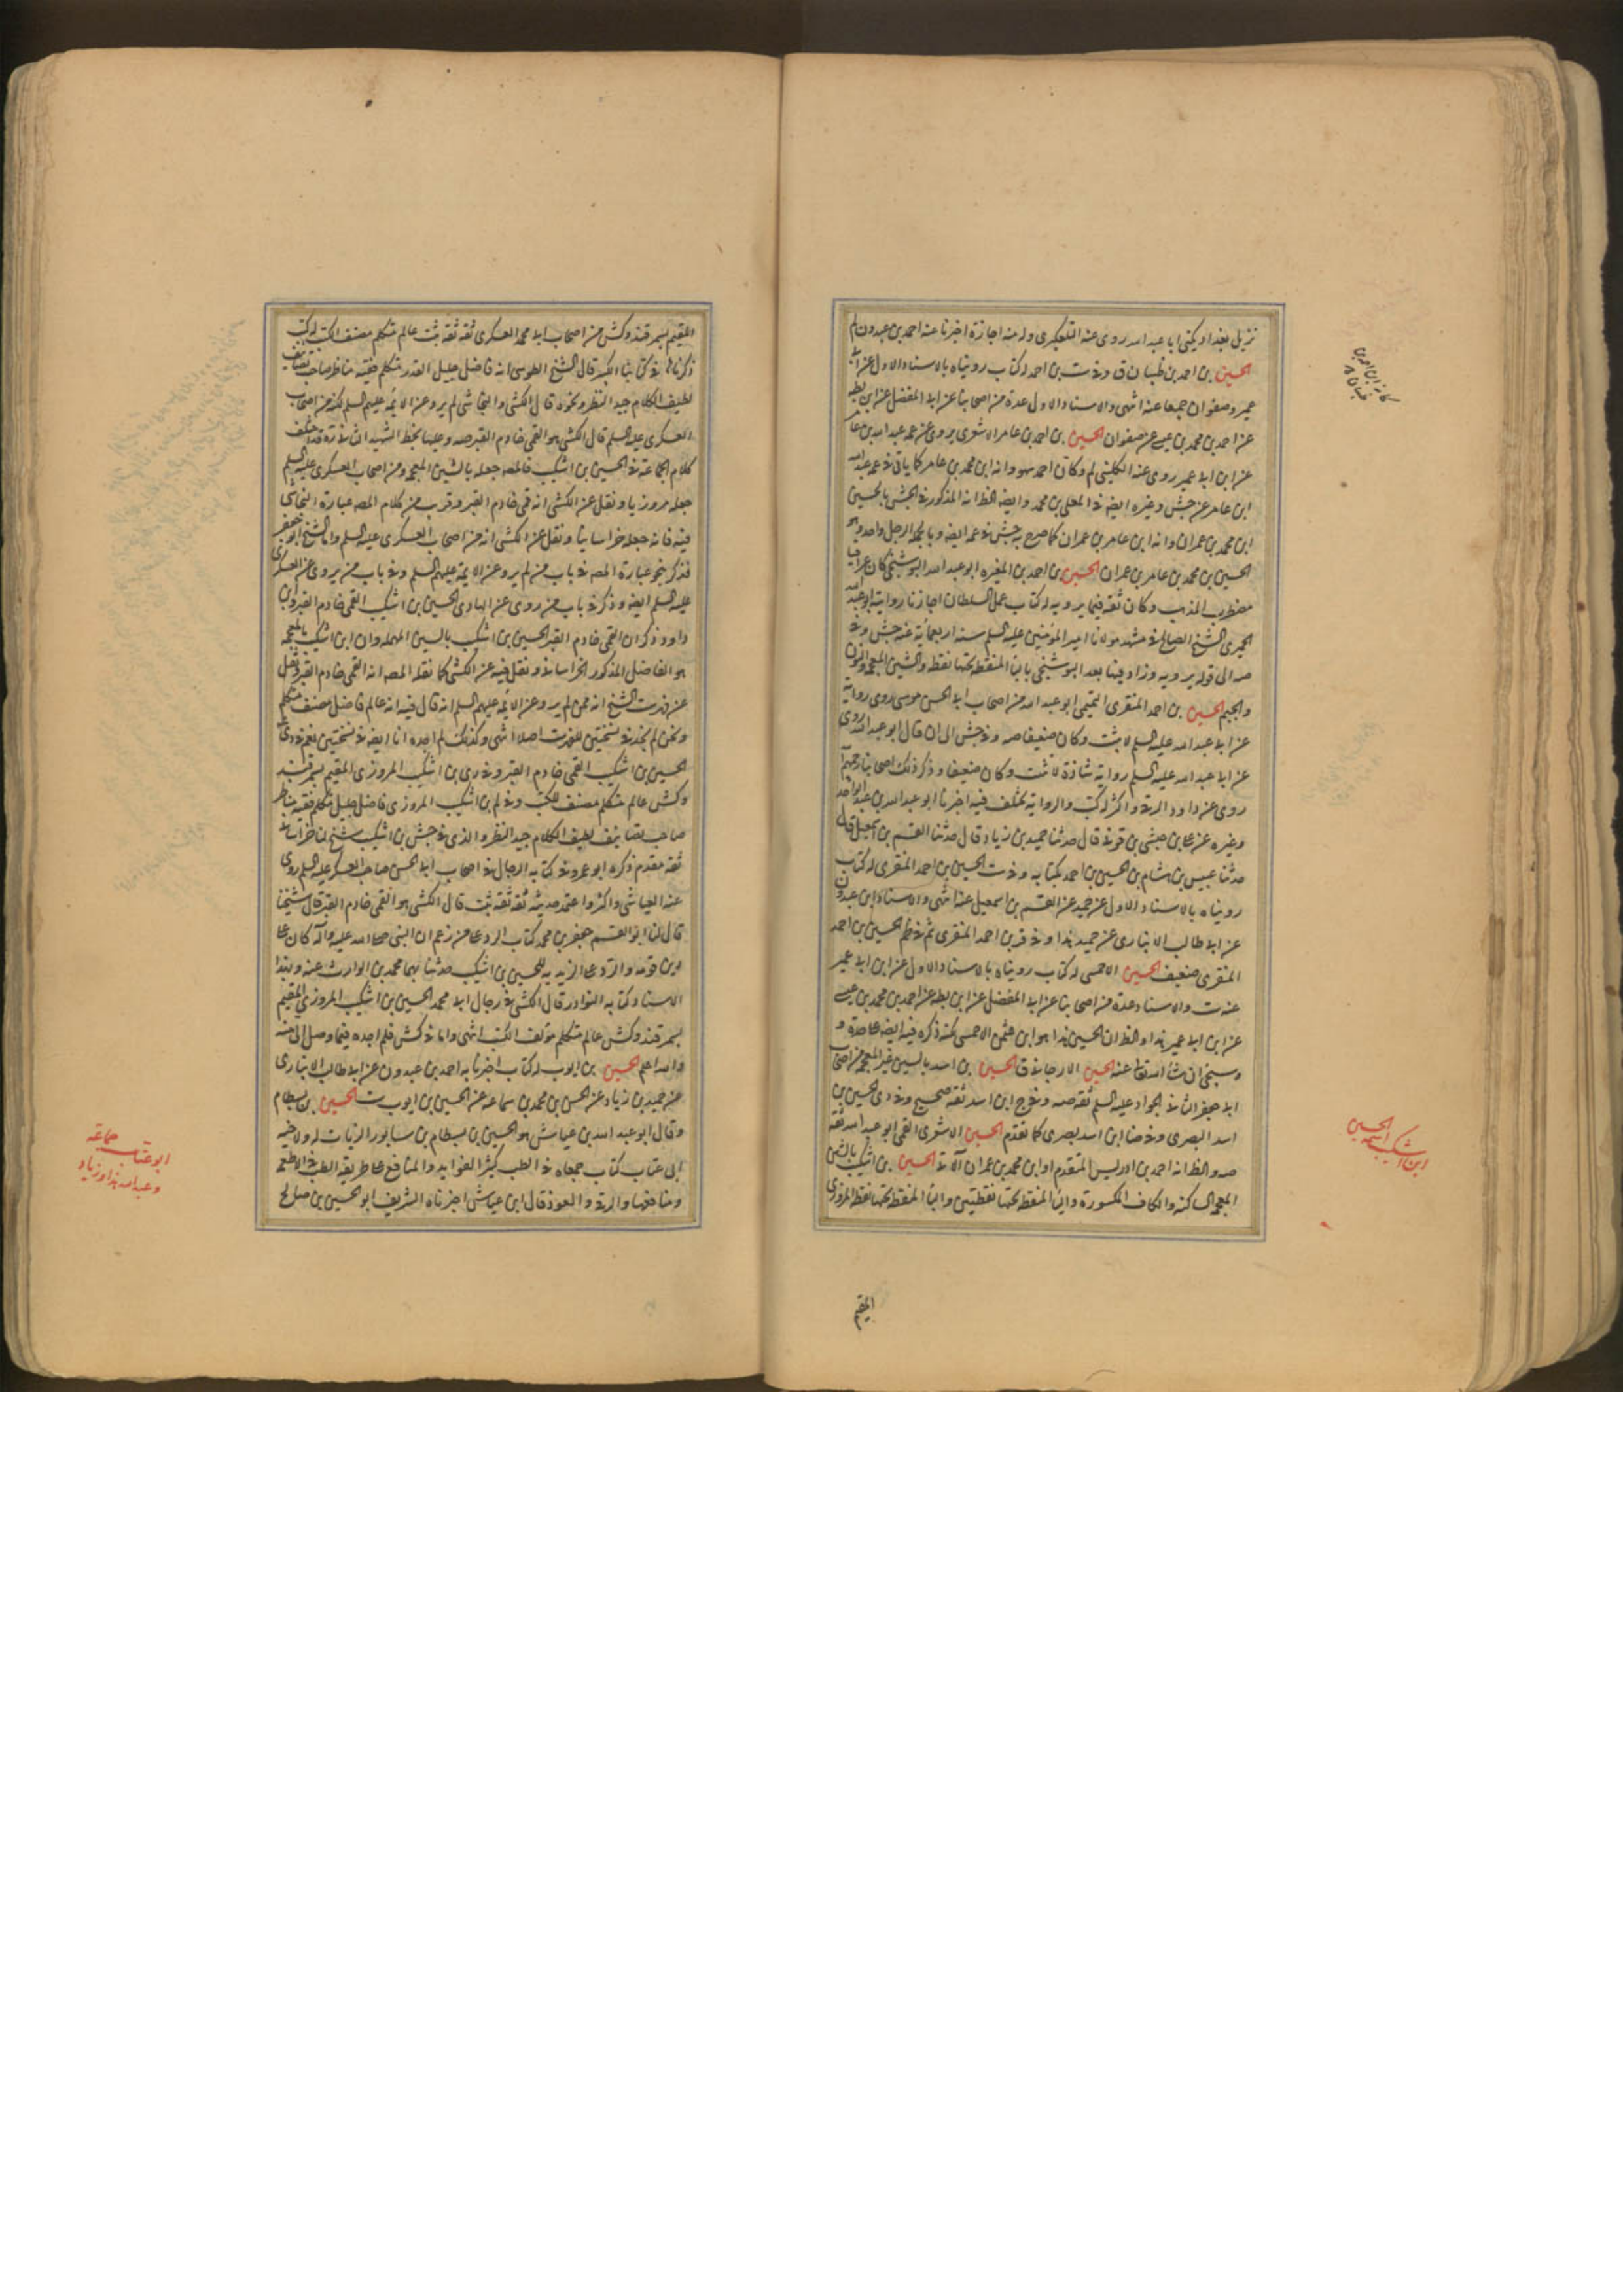 نزيل بغداد يكنى ابا عبد الله روى عنه التلعكبرى وله منه اجازة اخبرنا عنه احمد بن عبدون لم
الحسين بن احمد بن ظبيان ق وفى ست بن احمد له كتاب رويناه بالاسناد الاول عن ابن ابى
عمير وصفوان جميعا عنه انتهى والاسناد الاول عدة من اصحابنا عن ابى المفضل عن ابن بطه
عن احمد بن محمد بن عيسى عن صفوان الحسين بن احمد بن عامر الاشعرى يروى عن عمه عبد الله بن عامر
عن ابن ابى عمير روى عنه الكلينى لم وكان احمد سهو وانه ابن محمد بن عامر كما ياتى فى عمه عبد الله
ابن عامر عن جش وغيره ايضه فى المعلى بن محمد وايضه الظ انه المذكور فى جش بالحسين
ابن محمد بن عمران وانه ابن عامر بن عمران كما صرح به جش فى عمه ايضه وبالجملة الرجل واحد وهو
الحسين بن محمد بن عامر بن عمران الحسين بن احمد بن المغيره ابو عبد الله البوشنجى كان عراقيا
مضطرب المذهب وكان ثقة فيما يرويه له كتاب عمل السلطان اجازنا روايته ابو عبد الله
الحميرى الشيخ الصالح فى مشهد مولانا امير المؤمنين عليه السلم سنه اربعمائة عنه جش وفى
صه الى قوله يرويه وزاد فيها بعد البوشنجى بالباء المنقطة تحتها نقطة والشين المعجمة والنون
والجيم الحسين بن احمد المنقرى التميمى ابو عبد الله من اصحاب ابى الحسن موسى روى رواية
عن ابى عبد الله عليه السلم لا تثبت وكان ضعيفا صه وفى جش الى ان قال ابو عبد الله روى
عن ابى عبد الله عليه السلم رواية شاذة لا تثبت وكان ضعيفا وذكر ذلك اصحابنا رحمهم الله
روى عن داود الرقى واكثر له كتب والرواية تختلف فيه اخبرنا ابو عبد الله بن عبد الواحد
وغيره عن على بن حبشى بن قونى قال حدثنا حميد بن زياد قال حدثنا القسم بن اسمعيل قال
حدثنا عبيس بن هشام بن الحسين بن احمد بكتابه وفى ست الحسين بن احمد المنقرى له كتاب
رويناه بالاسناد الاول عن حميد عن القسم بن اسمعيل عنه انتهى والاسناد ابن عبدون
عن ابى طالب الانبارى عن حميد هذا وفى قر بن احمد المنقرى ثم فى ظم الحسين بن احمد
المنقرى ضعيف الحسين الاحمسى له كتاب رويناه بالاسناد الاول عن ابن ابى عمير
عنه ست والاسناد عدة من اصحابنا عن ابى المفضل عن ابن بطه عن احمد بن محمد بن عيسى
عن ابن ابى عمير هذا والظ ان الحسين هذا هو ابن عثمن الاحمسى لكنه ذكره فيه ايضه على حدة و
وسيجئ ان شاء الله تعالى عنه الحسين الارجانى ق الحسين بن اسد بالسين غير المعجمه من اصحاب
ابى جعفر الثانى الجواد عليه السلم ثقة صه وفى ج ابن اسد ثقة صحيح وفى دى الحسين بن
اسد البصرى وفى ضا ابن اسد بصرى كما تقدم الحسين الاشعرى القمى ابو عبد الله ثقة
صه والظ انه احمد بن ادريس المتقدم او ابن محمد بن عمران الآتى الحسين بن اشكيب بالشين
المعجمة الساكنه والكاف المكسورة والياء المنقطة تحتها نقطتين والباء المنقطة تحتها نقطة المروزى
المقيم
الحسين
ابن اشكيب
المقيم بسمرقند وكش من اصحاب ابى محمد العسكرى ثقة ثقة ثبت عالم متكلم مصنف الكتب له كتب
ذكرناها فى كتابنا الكبير قال الشيخ الطوسى انه فاضل جليل القدر متكلم فقيه مناظر صاحب تصانيف
لطيف الكلام جيد النظر ونحوه قال الكشى والنجاشى لم يرو عن الائمة عليهم السلم لكنه من اصحاب
العسكرى عليه السلم قال الكشى هو القمى خادم القبر صه وعليها بخط الشهيد الثانى قد اختلف
كلام الجماعة فى الحسين بن اشكيب فالمصه جعله بالشين المعجمه ومن اصحاب العسكرى عليه السلم
جعله مروزيا ونقل عن الكشى انه قمى خادم القبر وقرب من كلام المصه عبارة النجاشى
فيه فانه جعله خراسانيا ونقل عن الكشى انه من اصحاب العسكرى عليه السلم واما الشيخ ابو جعفر
فذكر بنحو عبارة المصه فى باب من لم يرو عن الائمة عليهم السلم وفى باب من يروى عن العسكرى
عليه السلم ايضه وذكر فى باب من روى عن الهادى الحسين بن اشكيب القمى خادم القبر وابن
داود ذكر ان القمى خادم القبر الحسين بن اشكيب بالسين المهمله وان ابن اشكيب بالمعجمة
هو الفاضل المذكور الخراسانى ونقل فيه عن الكشى كما نقله المصه انه القمى خادم القبر ونقل
عن فهرست الشيخ انه ممن لم يرو عن الائمة عليهم السلم انه قال فيه انه عالم فاضل مصنف متكلم
ونحن لم نجده فى نسختين للفهرست اصلا انتهى وكذلك لم اجده انا ايضه فى نسختين نعم فى دى
الحسين بن اشكيب القمى خادم القبر وفى رى بن اشكيب المروزى المقيم بسمرقند
وكش عالم متكلم مصنف للكتب وفى لم بن اشكيب المروزى فاضل جليل متكلم فقيه مناظر
صاحب تصانيف لطيف الكلام جيد النظر والذى فى جش بن اشكيب شيخ لنا خراسانى
ثقة مقدم ذكره ابو عمرو فى كتابه الرجال فى اصحاب ابى الحسن صاحب العسكر عليه السلم روى
عنه العياشى واكثر واعتمد حديثه ثقة ثقة ثبت قال الكشى هو القمى خادم القبر قال شيخنا
قال لنا ابو القسم جعفر بن محمد كتاب الرد على من زعم ان النبى صلى الله عليه وآله كان على
دين قومه والرد على الزيديه للحسين بن اشكيب حدثنا بهما محمد بن الوارث عنه وبهذا
الاسناد كتابه النوادر قال الكشى فى رجال ابى محمد الحسين بن اشكيب المروزى المقيم
بسمرقند وكش عالم متكلم مؤلف الكتب انتهى واما فى كش فلم اجده فيما وصل الى منه
والله اعلم الحسين بن ايوب له كتاب اخبرنا به احمد بن عبدون عن ابى طالب الانبارى
عن حميد بن زياد عن الحسن بن محمد بن سماعه عن الحسين بن ايوب ست الحسين بن بسطام
وقال ابو عبد الله بن عياش هو الحسين بن بسطام بن سابور الزيات له ولاخيه
ابى عتاب كتاب جمعاه فى الطب كثير الفوايد والمنافع على طريقة الطب فى الاطعمه
ومنافعها والرقى والعوذ قال ابن عياش اخبرناه الشريف ابو الحسين بن صالح
جماعة
ابو عتاب
وعبد الله هذا وزياد